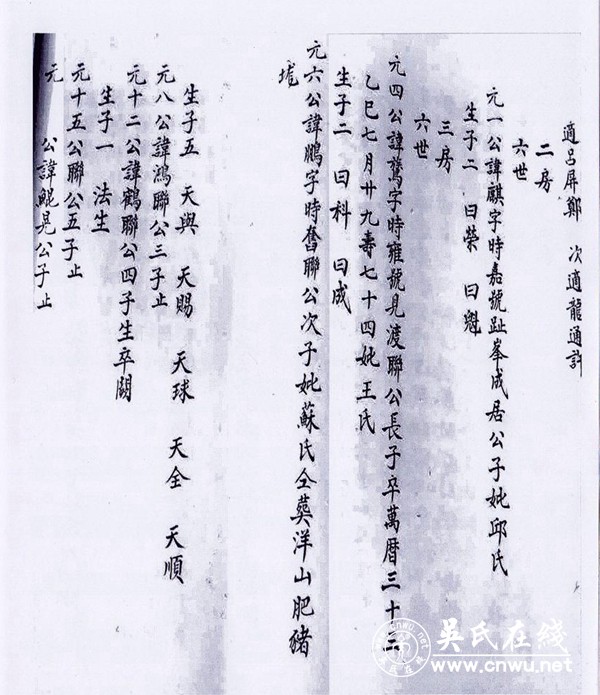 適呂屏鄭　次適龍通許
二房
六世
元一公諱麒字時嘉號趾峯成居公子妣邱氏
生子二　曰榮　曰魁
三房
六世
元四公諱鶱字時雍號見渡聯公長子卒萬曆三十三
乙巳七月廿九壽七十四妣王氏
生子二　曰科　曰成
元六公諱鵬字時奮聯公次子妣蘇氏仝葬洋山肥豬
生子五　天與　天賜　天球　天全　天順
元八公諱鴻聯公三子止
元十二公諱鶴聯公四子生卒闕
生子一　法生
元十五公聯公五子止
元　公諱鯤晃公子止
吳氏在线
www.cnwu.net